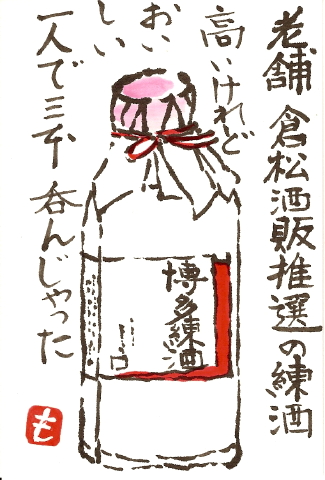 老舗 倉松酒販推選の練酒
高いけれど
おいしい
一人で三本 呑んじゃった
博多練酒
も